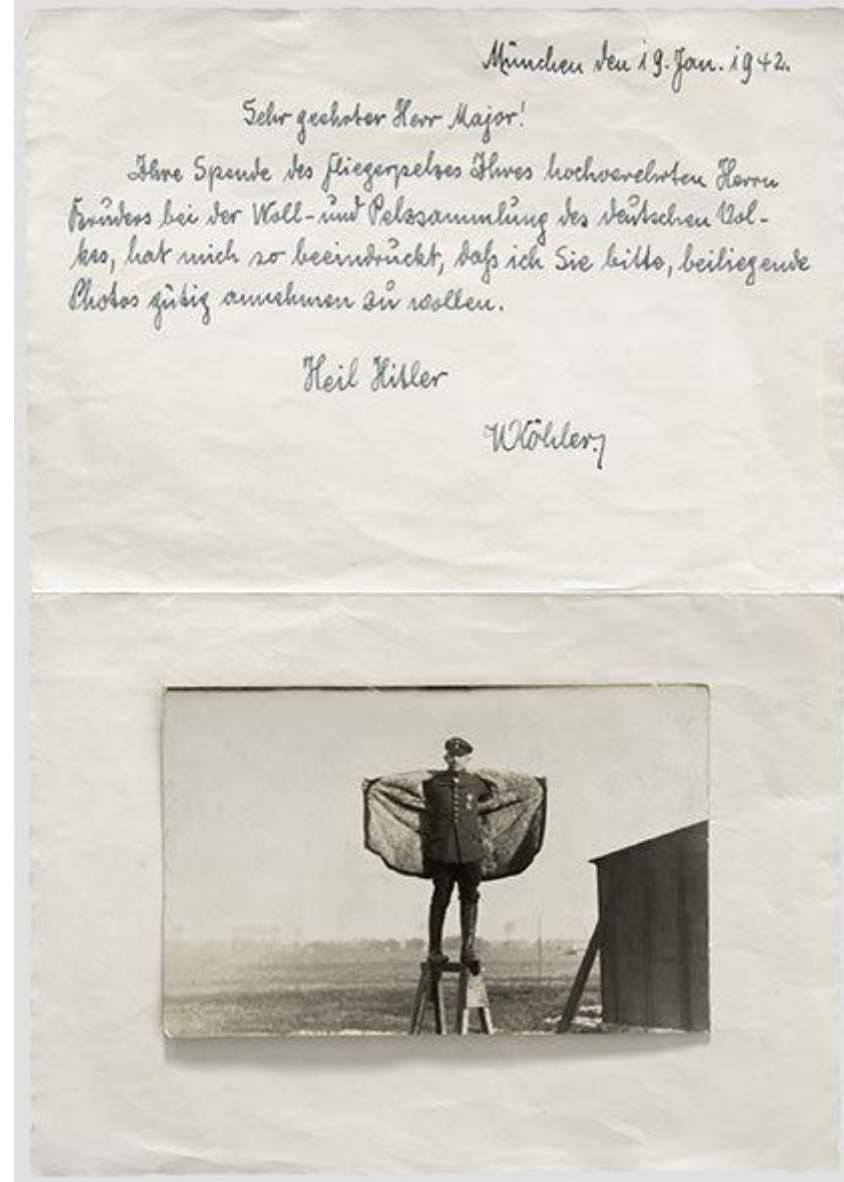 München den 19. Jan. 1942.
Sehr geehrter Herr Major!
Ihre Spende des Fliegerpelzes Ihres hochverehrten Herrn
Bruders bei der Woll- und Pelzsammlung des deutschen Vol-
kes, hat mich so beeindruckt, daß ich Sie bitte, beiliegende
Photos gütig annehmen zu wollen.
Heil Hitler
WKöhler